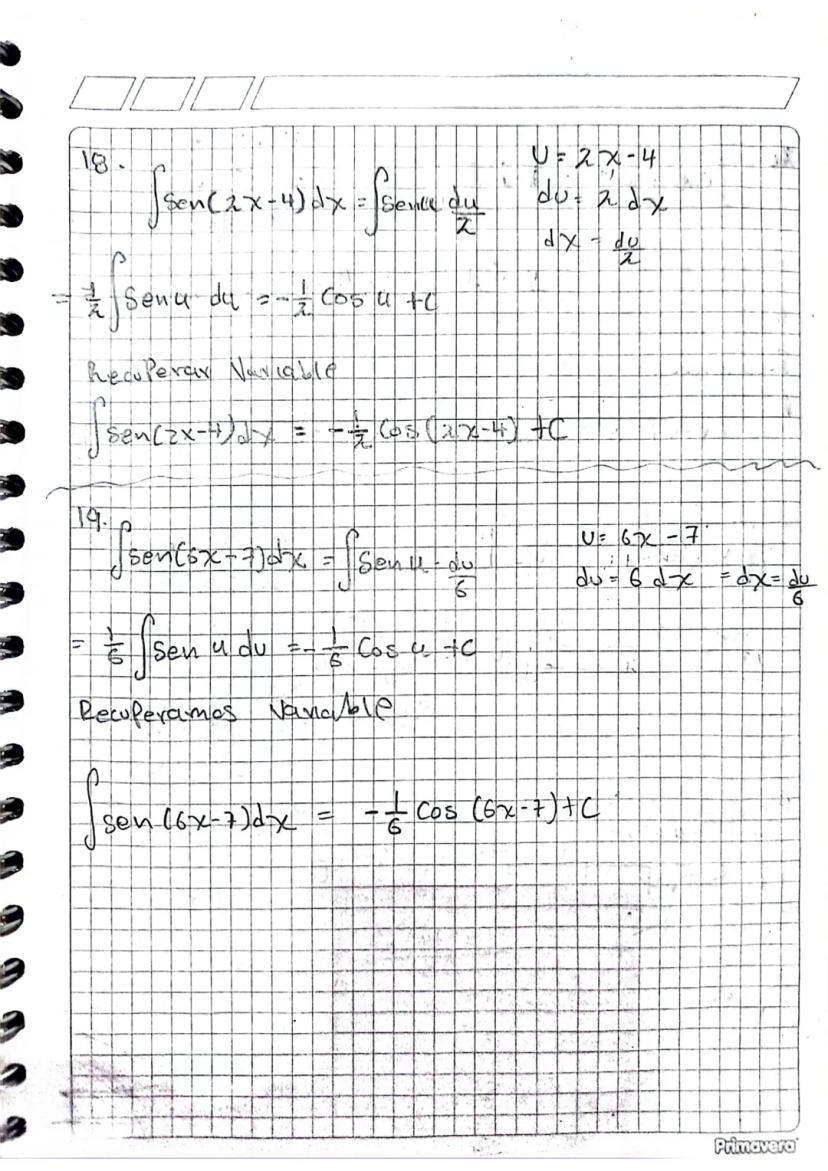 18.
∫sen(2x-4)dx = ∫sen u du/2
U = 2x-4
du = 2 dx
dx = du/2
= 1/2 ∫sen u du = -1/2 Cos u +C
Recuperar Variable
∫sen(2x-4)dx = -1/2 Cos (2x-4) +C
19.
∫sen(6x-7)dx = ∫sen u · du/6
U = 6x - 7
du = 6 dx = dx = du/6
= 1/6 ∫sen u du = -1/6 Cos u +C
Recuperamos Variable
∫sen (6x-7)dx = -1/6 Cos (6x-7)+C
Primavera